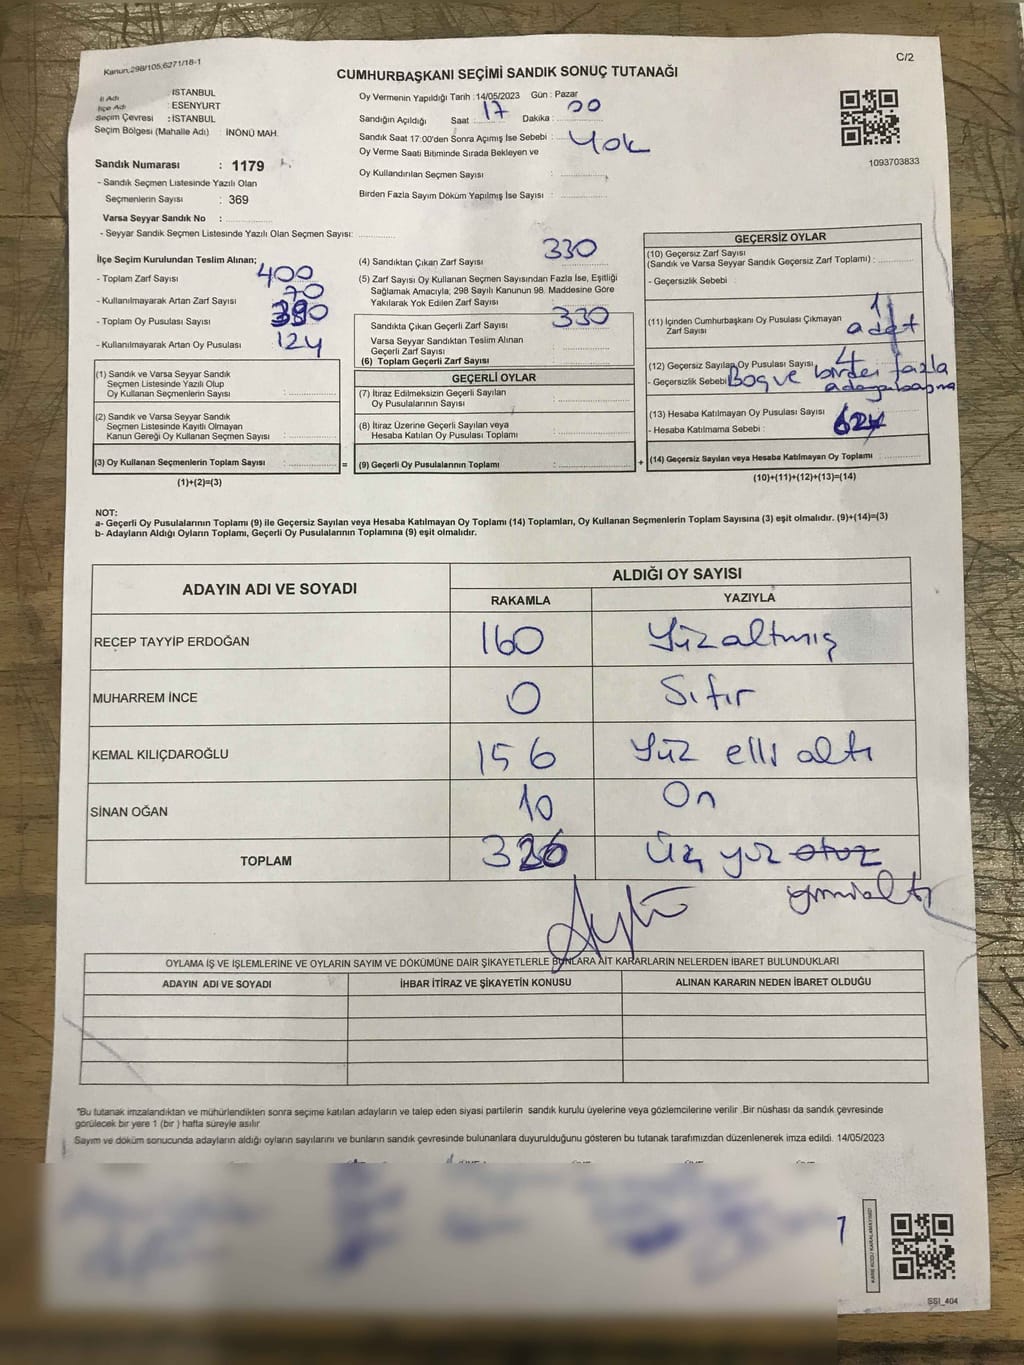 Kanun,298/105,6271/18-1
C/2
CUMHURBAŞKANI SEÇİMİ SANDIK SONUÇ TUTANAĞI
İl Adı : İSTANBUL
İlçe Adı : ESENYURT
Seçim Çevresi : İSTANBUL
Seçim Bölgesi (Mahalle Adı) : İNÖNÜ MAH.
Sandık Numarası : 1179
- Sandık Seçmen Listesinde Yazılı Olan
Seçmenlerin Sayısı : 369
Varsa Seyyar Sandık No :
- Seyyar Sandık Seçmen Listesinde Yazılı Olan Seçmen Sayısı:
Oy Vermenin Yapıldığı Tarih : 14/05/2023 Gün : Pazar
Sandığın Açıldığı Saat : 17 Dakika : 00
Sandık Saat 17:00'den Sonra Açımış İse Sebebi : Yok
Oy Verme Saati Bitiminde Sırada Bekleyen ve
Oy Kullandırılan Seçmen Sayısı :
Birden Fazla Sayım Döküm Yapılmış İse Sayısı :
1093703833
İlçe Seçim Kurulundan Teslim Alınan;
- Toplam Zarf Sayısı : 400
- Kullanılmayarak Artan Zarf Sayısı : 70
- Toplam Oy Pusulası Sayısı :
- Kullanılmayarak Artan Oy Pusulası : 124
(1) Sandık ve Varsa Seyyar Sandık
Seçmen Listesinde Yazılı Olup
Oy Kullanan Seçmenlerin Sayısı :
(2) Sandık ve Varsa Seyyar Sandık
Seçmen Listesinde Kayıtlı Olmayan
Kanun Gereği Oy Kullanan Seçmen Sayısı :
(3) Oy Kullanan Seçmenlerin Toplam Sayısı :
(1)+(2)=(3)
(4) Sandıktan Çıkan Zarf Sayısı : 330
(5) Zarf Sayısı Oy Kullanan Seçmen Sayısından Fazla İse, Eşitliği
Sağlamak Amacıyla, 298 Sayılı Kanunun 98. Maddesine Göre
Yakılarak Yok Edilen Zarf Sayısı :
Sandıkta Çıkan Geçerli Zarf Sayısı : 330
Varsa Seyyar Sandıktan Teslim Alınan
Geçerli Zarf Sayısı :
(6) Toplam Geçerli Zarf Sayısı
GEÇERLİ OYLAR
(7) İtiraz Edilmeksizin Geçerli Sayılan
Oy Pusulalarının Sayısı :
(8) İtiraz Üzerine Geçerli Sayılan veya
Hesaba Katılan Oy Pusulası Toplamı :
= (9) Geçerli Oy Pusulalarının Toplamı : +
GEÇERSİZ OYLAR
(10) Geçersiz Zarf Sayısı
(Sandık ve Varsa Seyyar Sandık Geçersiz Zarf Toplamı) :
- Geçersizlik Sebebi :
(11) İçinden Cumhurbaşkanı Oy Pusulası Çıkmayan
Zarf Sayısı : 1 adet
(12) Geçersiz Sayılan Oy Pusulası Sayısı : 4
- Geçersizlik Sebebi : Boş ve birden fazla
adaya basma
(13) Hesaba Katılmayan Oy Pusulası Sayısı :
- Hesaba Katılmama Sebebi :
(14) Geçersiz Sayılan veya Hesaba Katılmayan Oy Toplamı :
(10)+(11)+(12)+(13)=(14)
NOT:
a- Geçerli Oy Pusulalarının Toplamı (9) ile Geçersiz Sayılan veya Hesaba Katılmayan Oy Toplamı (14) Toplamları, Oy Kullanan Seçmenlerin Toplam Sayısına (3) eşit olmalıdır. (9)+(14)=(3)
b- Adayların Aldığı Oyların Toplamı, Geçerli Oy Pusulalarının Toplamına (9) eşit olmalıdır.
ADAYIN ADI VE SOYADI
ALDIĞI OY SAYISI
RAKAMLA YAZIYLA
RECEP TAYYİP ERDOĞAN 160 Yüzaltmış
MUHARREM İNCE 0 Sıfır
KEMAL KILIÇDAROĞLU 156 Yüz elli altı
SİNAN OĞAN 10 On
TOPLAM 326 Üç yüz otuz
yirmialtı
OYLAMA İŞ VE İŞLEMLERİNE VE OYLARIN SAYIM VE DÖKÜMÜNE DAİR ŞİKAYETLERLE BUNLARA AİT KARARLARIN NELERDEN İBARET BULUNDUKLARI
ADAYIN ADI VE SOYADI İHBAR İTİRAZ VE ŞİKAYETİN KONUSU ALINAN KARARIN NEDEN İBARET OLDUĞU
*Bu tutanak imzalandıktan ve mühürlendikten sonra seçime katılan adayların ve talep eden siyasi partilerin sandık kurulu üyelerine veya gözlemcilerine verilir .Bir nüshası da sandık çevresinde
görülecek bir yere 1 (bir ) hafta süreyle asılır
Sayım ve döküm sonucunda adayların aldığı oyların sayılarını ve bunların sandık çevresinde bulunanlara duyurulduğunu gösteren bu tutanak tarafımızdan düzenlenerek imza edildi. 14/05/2023
KARE KODU KARALAMAYINIZ!
SSI_404